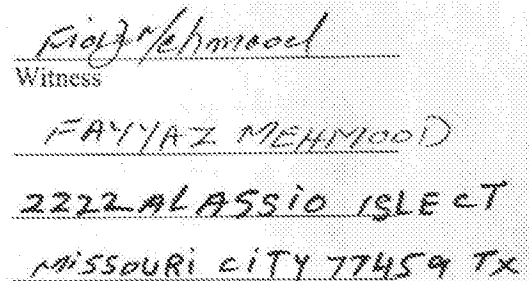 Fiaz Mehmood
Witness
FAYYAZ MEHMOOD
2222 ALASSIO ISLE CT
MISSOURI CITY 77459 TX